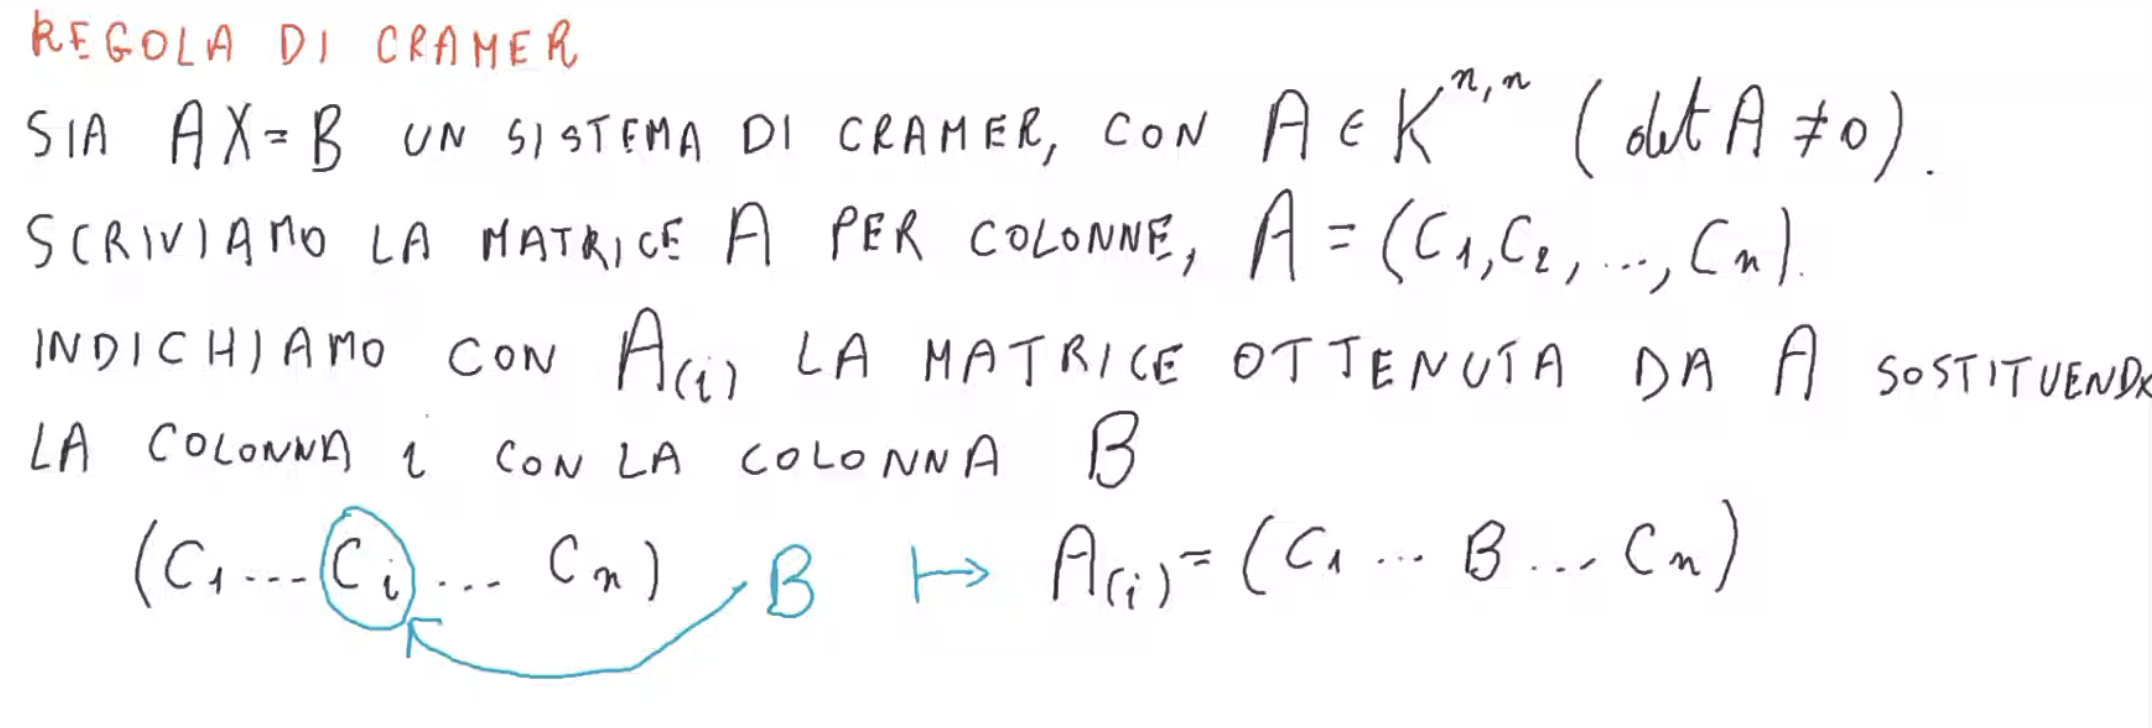 REGOLA DI CRAMER
SIA AX=B UN SISTEMA DI CRAMER, CON A ∈ K^{n,n} (det A ≠ 0).
SCRIVIAMO LA MATRICE A PER COLONNE, A = (C_1, C_2, ..., C_n).
INDICHIAMO CON A_{(i)} LA MATRICE OTTENUTA DA A SOSTITUENDO
LA COLONNA i CON LA COLONNA B
(C_1 ... C_i ... C_n) B ↦ A_{(i)} = (C_1 ... B ... C_n)